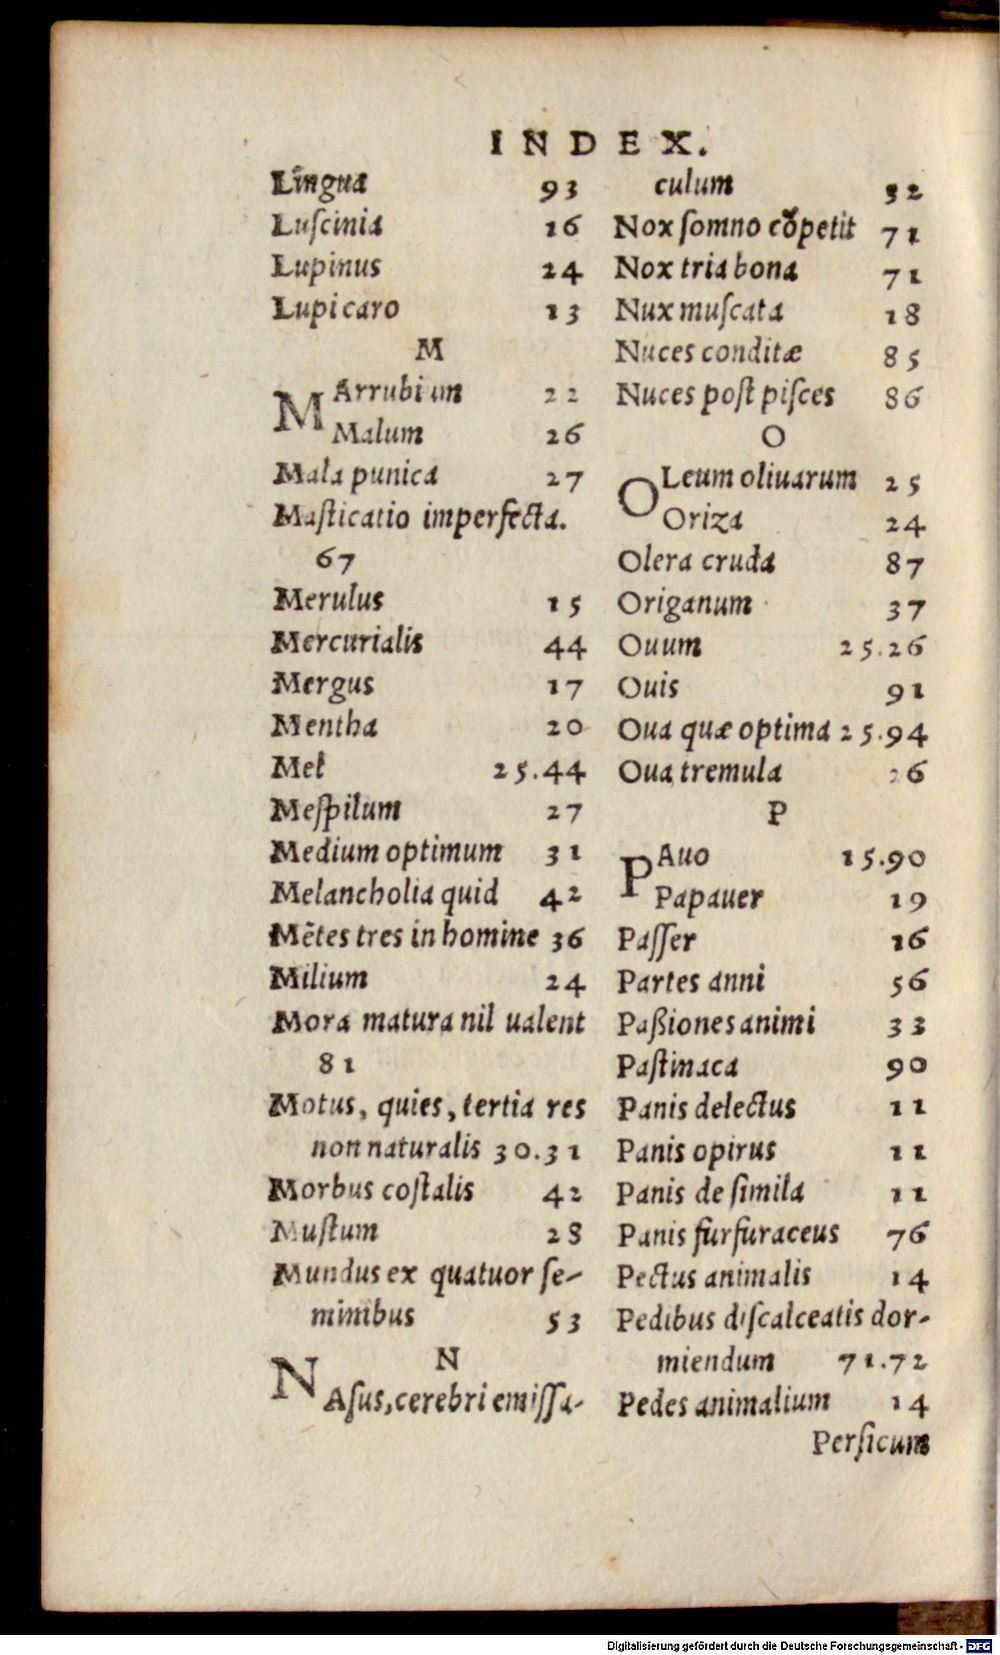 INDEX.
Lingua 93
Luſcinia 16
Lupinus 24
Lupi caro 13
M
MArrubium 22
Malum 26
Mala punica 27
Maſticatio imperfecta.
67
Merulus 15
Mercurialis 44
Mergus 17
Mentha 20
Mel 25.44
Meſpilum 27
Medium optimum 31
Melancholia quid 42
Mētes tres in homine 36
Milium 24
Mora matura nil ualent
81
Motus, quies, tertia res
non naturalis 30.31
Morbus coſtalis 42
Muſtum 28
Mundus ex quatuor ſe-
minibus 53
N
NAſus, cerebri emiſſa-
culum 32
Nox ſomno cōpetit 71
Nox tria bona 71
Nux muſcata 18
Nuces conditæ 85
Nuces poſt piſces 86
O
OLeum oliuarum 25
Oriza 24
Olera cruda 87
Origanum 37
Ouum 25.26
Ouis 91
Oua quæ optima 25.94
Oua tremula 26
P
PAuo 15.90
Papauer 19
Paſſer 16
Partes anni 56
Paßiones animi 33
Paſtinaca 90
Panis delectus 11
Panis opirus 11
Panis de ſimila 11
Panis furfuraceus 76
Pectus animalis 14
Pedibus diſcalceatis dor-
miendum 71.72
Pedes animalium 14
Perſicum
Digitalisierung gefördert durch die Deutsche Forschungsgemeinschaft - DFG